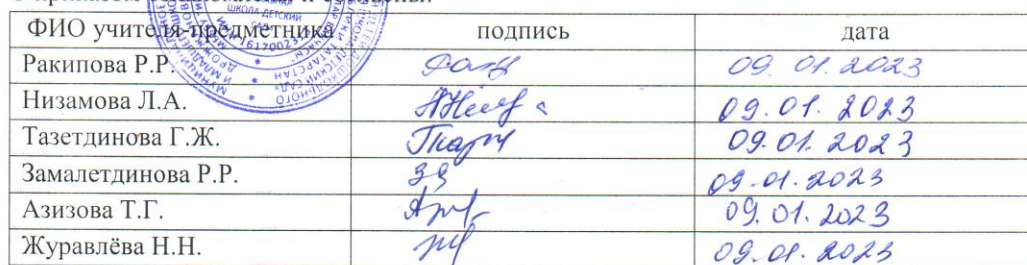 ФИО учителя-предметника подпись дата
Ракипова Р.Р. 09.01.2023
Низамова Л.А. 09.01.2023
Тазетдинова Г.Ж. 09.01.2023
Замалетдинова Р.Р. 09.01.2023
Азизова Т.Г. 09.01.2023
Журавлёва Н.Н. 09.01.2023